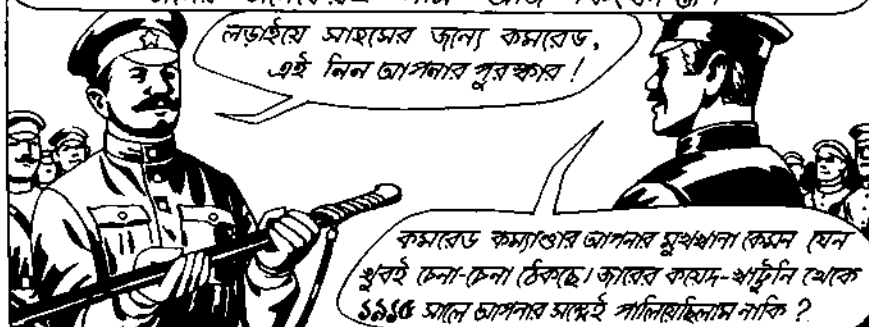 লড়াইয়ে সাহসের জন্যে কমরেড,
এই নিন আপনার পুরস্কার !
কমরেড কম্যাণ্ডার আপনার মুখখানা কেমন যেন
খুবই চেনা-চেনা ঠেকছে। জারের কয়েদ-খাটুনি থেকে
১৯১৫ সালে আপনার সঙ্গেই পালিয়েছিলাম নাকি ?